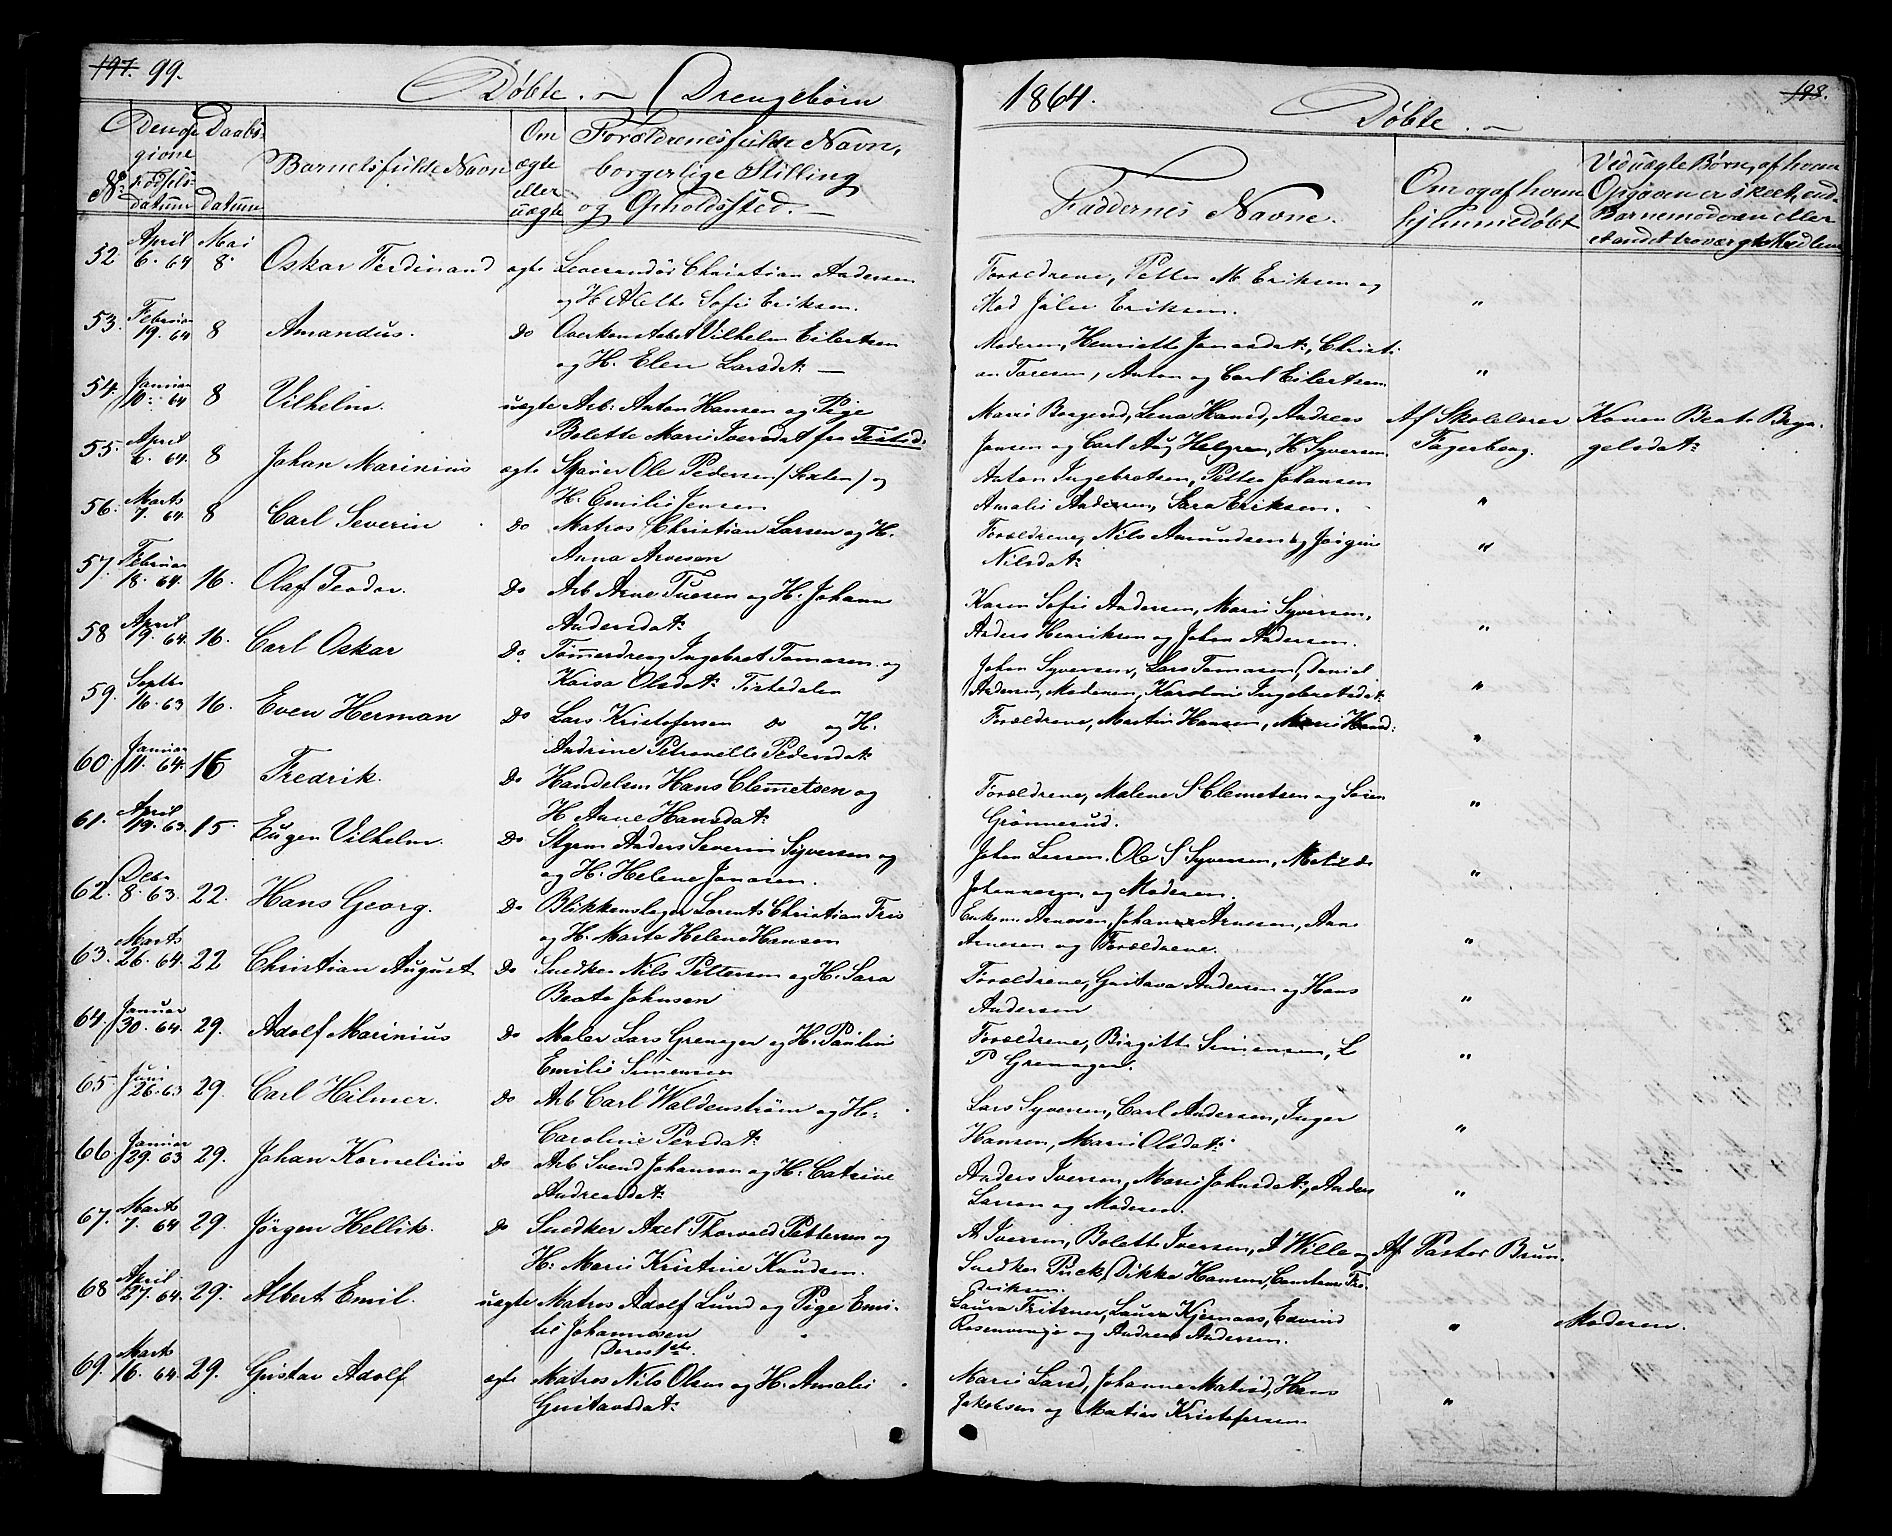 197. 99.
Døbte. Drengebørn
1864.
Døbte.
198.
No
Den opgivne Fødselsdatum
Daabsdatum
Barnets fulde Navn
Om ægte eller uægte
Forældrenes fulde Navn, borgerlige Stilling og Opholdssted.
Faddernes Navne.
Om og af hvem hjemmedøbt
Ved uægte Børn, af hvem Opgaven er skeet, end Barnemoderen eller
52 April 6. 64 Mai 8. Oskar Ferdinand ægte Leverandør Christian Andersen
og H. Sofie Eriksen.
Forældrene, Petter M. Eriksen og
Mad Julie Eriksen. "
53. Februar 19. 64 8 Amandus. Do Overkonstabel Vilhelm Eilertsen
og H. Elen Larsdat:
Moderen, Henriette Jonasdat:, Christi-
an Toresen, Anton og Carl Eilertsen "
54. Januar 10. 64 8 Vilhelm. uægte Arb: Anton Hansen og Pige
Bolette Marie Iversdat fra Tistedn.
Marie Borgersd, Lena Hansd, Andreas
Jensen og Carl Aug Helgren, H Syversen
Af Skolelærer
Fagerborg.
Konen Beate Bryn-
gelsdat:
55. April 6. 64. 8 Johan Marinius ægte Skriver Ole Pedersen og
H: Emilie Jensen
Anton Ingebretsen, Petter Johansen
Amalie Andersen, Sara Eriksen. "
56. Marts 7. 64 8 Carl Severin Do Matros Christian Larsen og H.
Anna Arvesen
Forældrene, Nils Amundsen og Jørgine
Nilsdat: "
57. Februar 18. 64. 16. Olaf Teodor. Do Arb Arne Tuesen og H. Johanne
Andersdat:
Karen Sofie Andersen, Marie Syversen,
Anders Henriksen og Johan Andersen. "
58 April 19. 64. 16. Carl Oskar Do. Tømmerdreng Ingebret Tomasen og
Kaisa Olsdat: Tistedalen
Johan Syversen, Lars Tomasen, Daniel
Andersen, Moderen, Karoline Ingebretsdat: "
59. Septbr 16. 63 16. Even Herman Do Lars Kristofersen do og H.
Andrine Petronelle Pedersdat:
Forældrene, Martin Hansen, Marie Hansd: "
60 Januar 11. 64. 16 Fredrik. Do Handelsm Hans Clemetsen og
H Anne Hansdat:
Forældrene, Malene S Clemetsen og Søren
Grønnerud. "
61. April 19. 63. 15. Eugen Vilhelm. Do Styrm Anders Severin Syversen og
og H. Helene Jonasen.
Johan Larsen, Ole S Syversen, Matilde
Johannesen, og Moderen. "
62. Deb. 8. 63. 22. Hans Georg. Do Blikkenslager Lorents Christian Friis
og H. Marte Helene Hansen
Arnesen, Johan Arnesen, Anne
Arnesen og Forældrene. "
63. Marts 26. 64 22 Christian August Do Snedker Nils Pettersen og H. Sara
Beate Johnsen
Forældrene, Gustava Andersen og Hans
Andersen "
64 Januar 30. 64 29. Adolf Marinius Do Maler Lars Grenager og H. Pauline
Emilie Simensen
Forældrene, Birgitte Simensen, L
P Grenager. "
65 Juni 26. 63 29. Carl Hilmer. Do Arb Carl Waldenstrøm og H.
Caroline Persdat:
Lars Syversen, Carl Andersen, Inger
Hansen, Marie Olsdat: "
66 Januar 29. 63 29. Johan Kornelius Do Arb Svend Johansen og H. Catrine
Andreasdat:
Anders Iversen, Marie Johnsdat:, Anders
Larsen og Moderen. "
67. Marts 7. 64 29. Jørgen Hellik. Do Snedker Axel Thorvald Pettersen og
H. Marie Kristine Knudsen.
A Iversen, Bolette Iversen, A Wille og
Snedker Puck, Dikka Hansen, Fre-
driksen.
Af Pastor Brun
68 April 27. 64. 29. Albert Emil. uægte Matros Adolf Lund og Pige Emi-
lie Johannesen
Laura Fritzner, Laura Kjernaas, Edvind
Rosenvinge og Andreas Andersen. "
Moderen.
69. Marts 16. 64. 29. Gustav Adolf ægte Matros Nils Olsen og H. Amalie
Gustavsdat:
Marie Larsd, Johanne Matisd, Hans
Jakobsen og Matias Kristofersen "